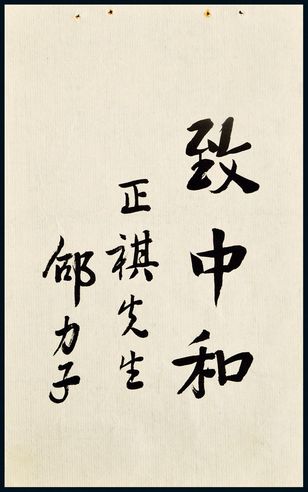 致中和
正祺先生
邵力子